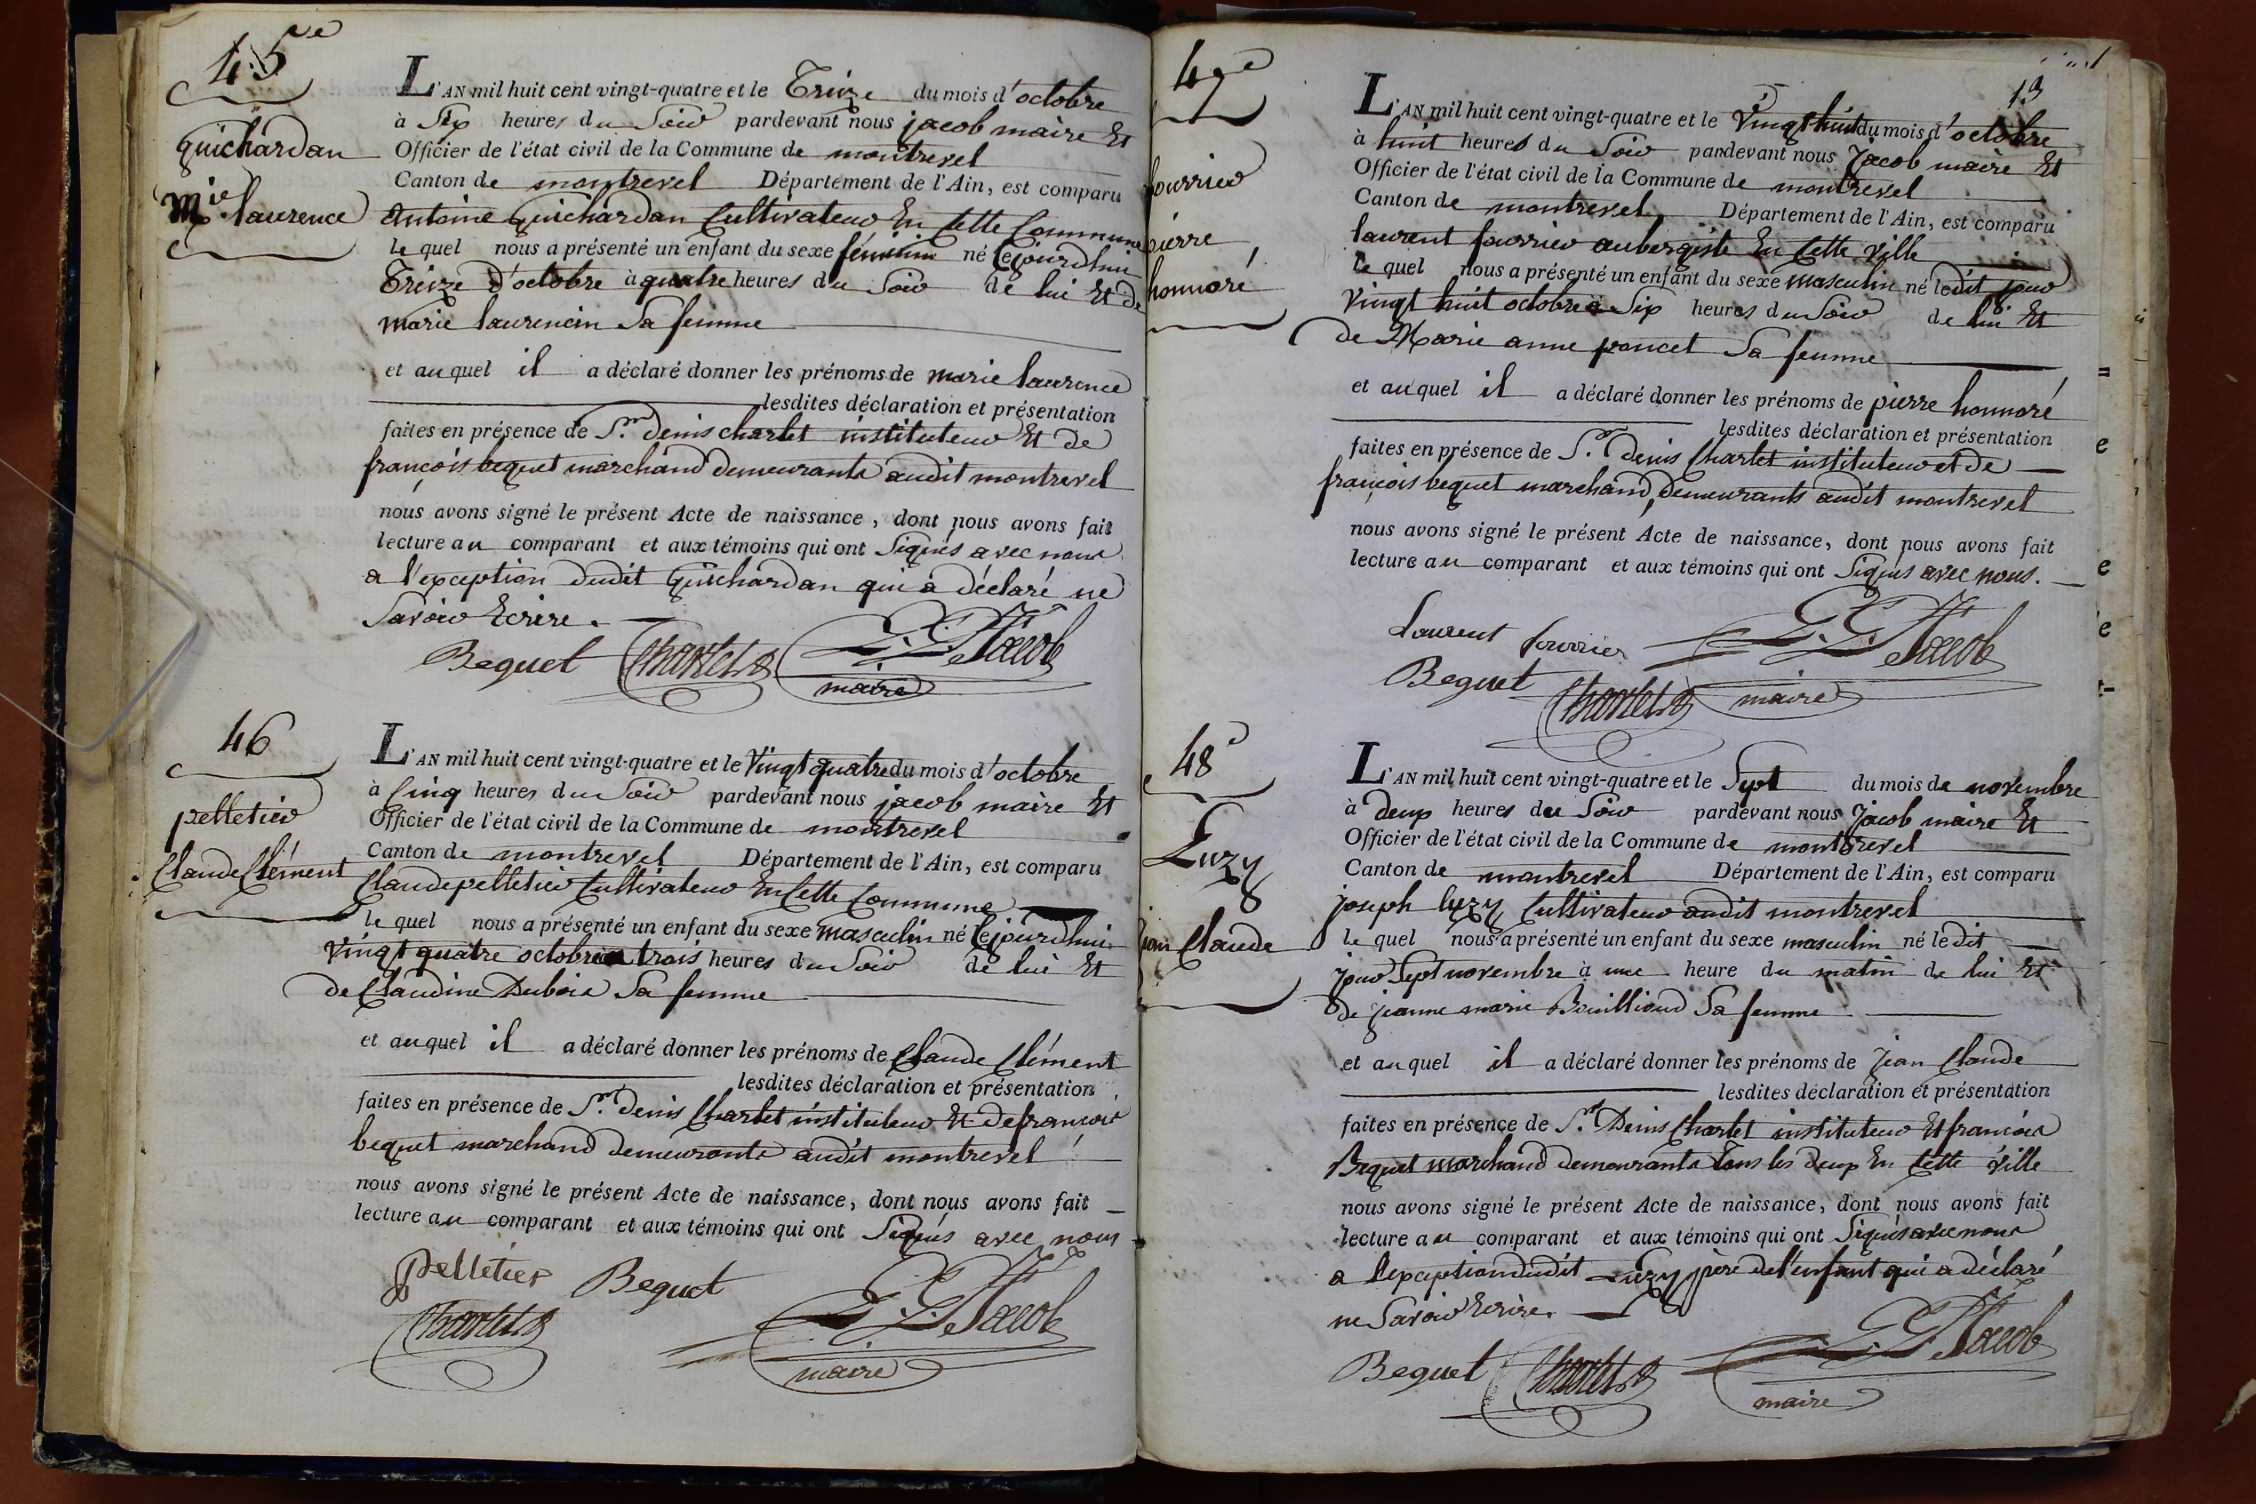 45e
Guichardan
Mie laurence
L'AN mil huit cent vingt-quatre et le Treize du mois d'octobre
à Six heures du Soir pardevant nous jacob maire Et
Officier de l'état civil de la Commune de montrevel
Canton de montrevel Département de l'Ain, est comparu
Antoine Guichardan Cultivateur En Cette Commune
le quel nous a présenté un enfant du sexe féminin né Cejourdhui
Treize d'octobre à quatre heures du Soir de lui Et de
marie laurencin Sa femme
et au quel il a déclaré donner les prénoms de marie laurence
lesdites déclaration et présentation
faites en présence de Sr. denis charlet instituteur Et de
françois bequet marchand demeurants audit montrevel
nous avons signé le présent Acte de naissance, dont nous avons fait
lecture au comparant et aux témoins qui ont Signés avec nous
a l'exception dudit Guichardan qui a déclaré ne
Savoir Ecrire.
Bequet Charlet Jacob
maire
46
pelletier
Claude Clément
L'AN mil huit cent vingt-quatre et le Vingt quatre du mois d'octobre
à Cinq heures du Soir pardevant nous jacob maire Et
Officier de l'état civil de la Commune de montrevel
Canton de montrevel Département de l'Ain, est comparu
Claude pelletier Cultivateur En Cette Commune
le quel nous a présenté un enfant du sexe masculin né Cejourdhui
Vingt quatre octobre a trois heures du Soir de lui Et
de Claudine Dubois Sa femme
et au quel il a déclaré donner les prénoms de Claude Clément
lesdites déclaration et présentation
faites en présence de Sr. denis Charlet instituteur Et de françois
bequet marchand demeurants audit montrevel
nous avons signé le présent Acte de naissance, dont nous avons fait
lecture au comparant et aux témoins qui ont Signés avec nous
pelletier Bequet
Charlet Jacob
maire
13
47e
fourrier
pierre
honnoré
L'AN mil huit cent vingt-quatre et le Vingt huit du mois d'octobre
à huit heures du Soir pardevant nous Jacob maire Et
Officier de l'état civil de la Commune de montrevel
Canton de montrevel Département de l'Ain, est comparu
laurent fourrier aubergiste En Cette Ville
le quel nous a présenté un enfant du sexe masculin né ledit jour
vingt huit octobre a Six heures du Soir de lui Et
de Marie anne poncet Sa femme
et au quel il a déclaré donner les prénoms de pierre honnoré
lesdites déclaration et présentation
faites en présence de Sr. denis Charlet instituteur et de
françois bequet marchand, demeurants audit montrevel
nous avons signé le présent Acte de naissance, dont nous avons fait
lecture au comparant et aux témoins qui ont Signés avec nous.
Laurent fourrier Jacob
Bequet Charlet maire
48e
Luzy
jean Claude
L'AN mil huit cent vingt-quatre et le Sept du mois de novembre
à deux heures du Soir pardevant nous Jacob maire Et
Officier de l'état civil de la Commune de montrevel
Canton de montrevel Département de l'Ain, est comparu
joseph luzy Cultivateur audit montrevel
le quel nous a présenté un enfant du sexe masculin né ledit
jour Sept novembre à une heure du matin de lui Et
de jeanne marie Bouilloud Sa femme
et au quel il a déclaré donner les prénoms de jean Claude
lesdites déclaration et présentation
faites en présence de Sr. Denis Charlet instituteur Et françois
Bequet marchand demeurants Tous les deux En Cette Ville
nous avons signé le présent Acte de naissance, dont nous avons fait
lecture au comparant et aux témoins qui ont Signés avec nous
a l'exception dudit Luzy père de l'enfant qui a déclaré
ne Savoir Ecrire.
Bequet Charlet Jacob
maire